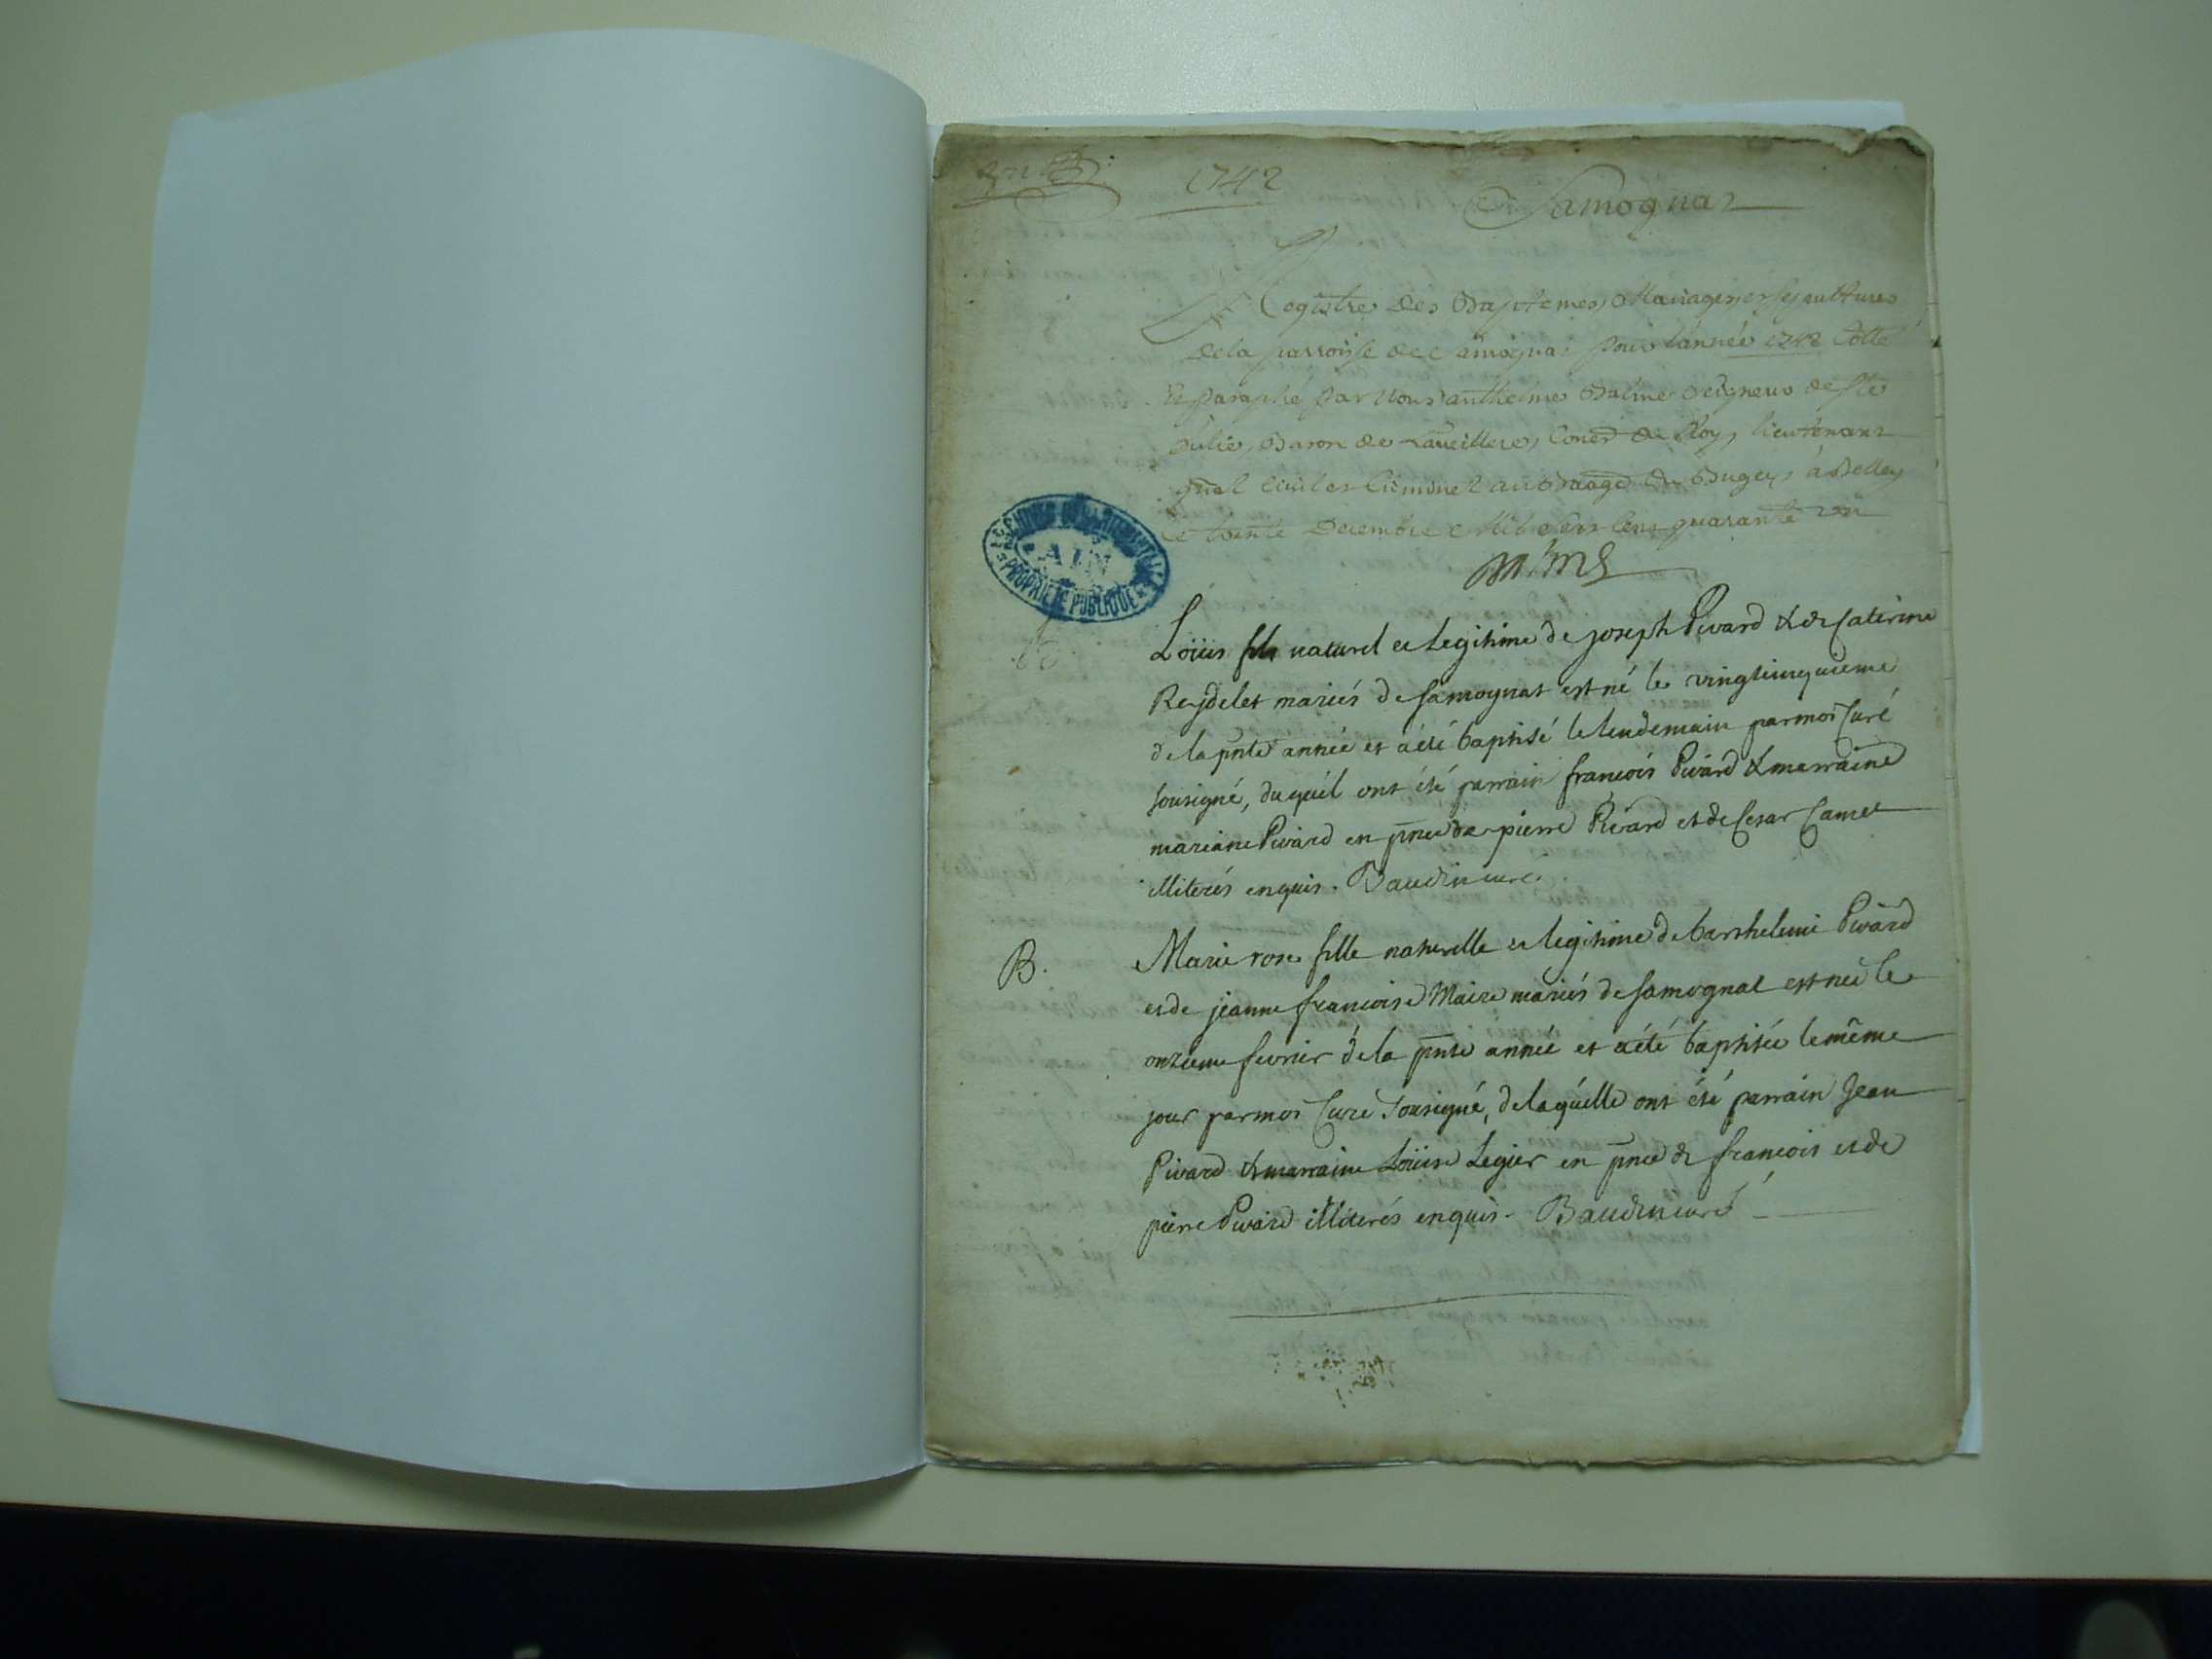 1742
Samognat
Registre des Baptemes, Mariages et sepultures
de la parroisse de Samognat pour l'année 1742 Cotté
Et paraphé par Nous anthelme Balme Seigneur de Ste
Julie, Baron de Coner du Roy, lieutenant
gnal Civil et Criminel au Baage du Bugey à Belley
Ce trente Decembre Mil Sept Cens quarante un
ARCHIVES DÉPARTEMENTALES
AIN
PROPRIÉTÉ PUBLIQUE
B.
Loüis fils naturel et legitime de joseph Pivard & de Caterine
Reydelet mariés de Samognat est né le vingtcinquieme
de la pnte année et a été baptisé le lendemain par moi Curé
sousigné, duquél ont été parrain françois Pivard & marraine
mariane Pivard en pnce de pierre Pivard et de Cesar Camet
illiterés enquis. Baudin curé.
B.
Marie rose fille naturelle et legitime de barthelemi Pivard
et de jeanne francoise Maire mariés de Samognat est née le
onzieme fevrier de la pnte année et a été baptisée le même
jour par moi Curé Sousigné, de laquélle ont été parrain Jean
Pivard & marraine Loüise Legier en pnce de francois et de
pierre Pivard illiterés enquis. Baudin curé